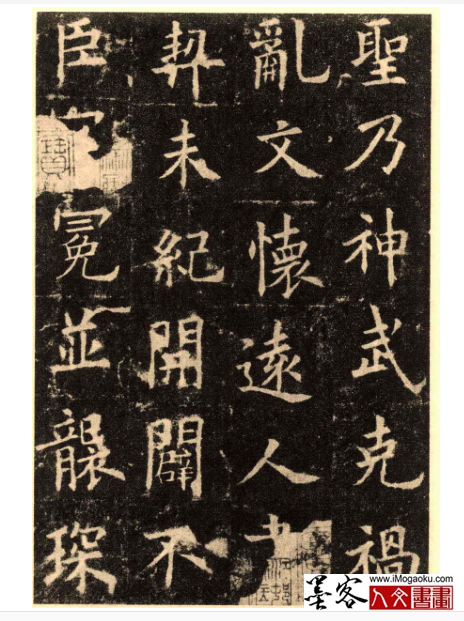 聖乃神武克禍
亂文懷遠人
契未紀開闢不
臣冕並襲琛
墨客
www.iMogaoku.com
人文書畫